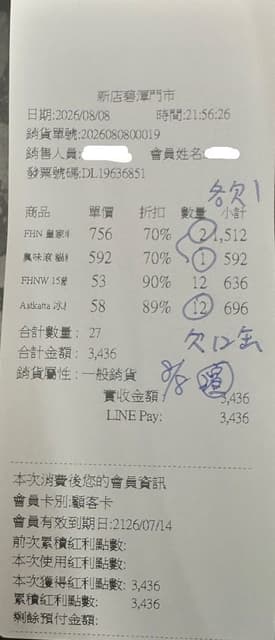 新店碧潭門市
日期:2026/08/08 時間:21:56:26
銷貨單號:2026080800019
銷售人員: 會員姓名:
發票號碼:DL19636851
各欠1
商品 單價 折扣 數量 小計
FHN 皇家 756 70% 2 1,512
592 70% 1 592
FHNW 15 53 90% 12 636
Astkatta 冰 58 89% 12 696
合計數量: 27
欠12盒
合計金額: 3,436
銷貨屬性:一般銷貨
實收金額 3,436
LINE Pay: 3,436
本次消費後您的會員資訊
會員卡別:顧客卡
會員有效到期日:2126/07/14
前次累積紅利點數:
本次使用紅利點數:
本次獲得紅利點數: 3,436
累積紅利點數: 3,436
剩餘預付金額: